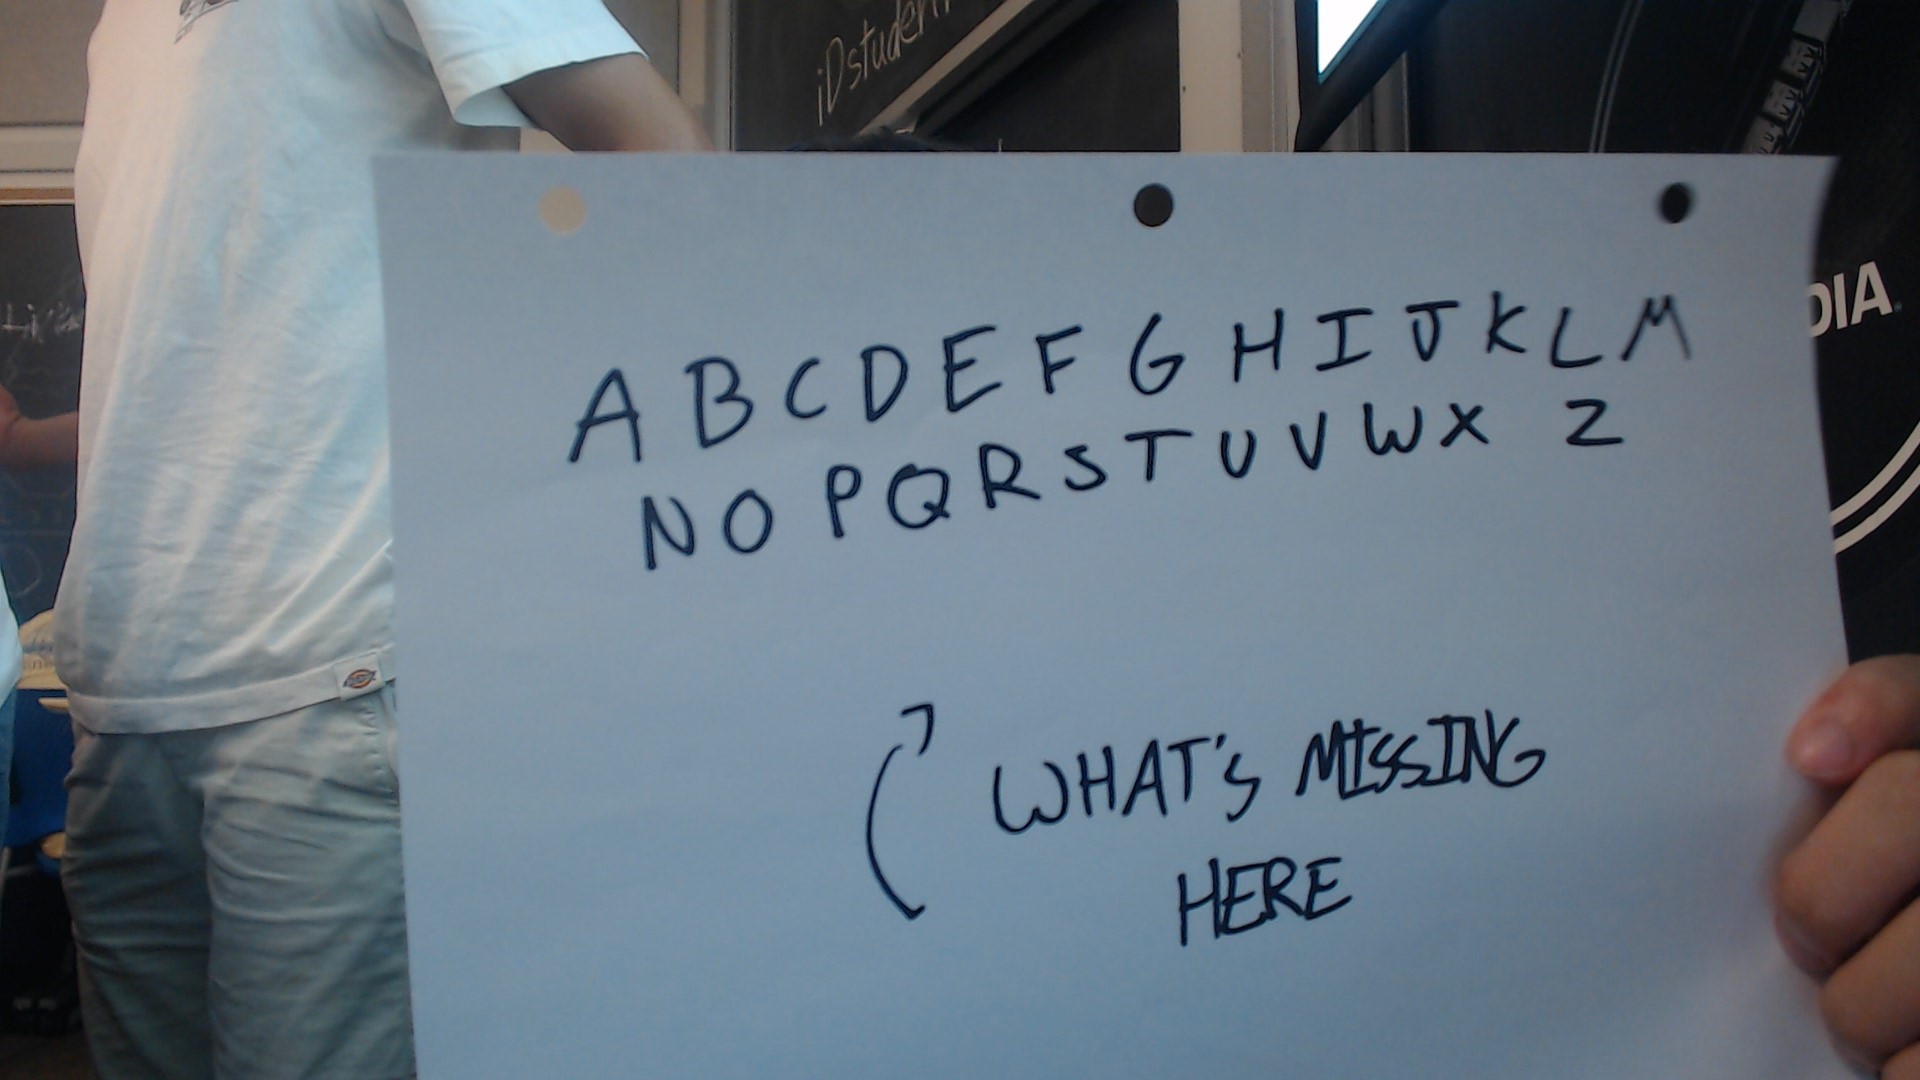 iDstuden
DIA
A B C D E F G H I J K L M
N O P Q R S T U V W X Z
WHAT'S MISSING
HERE